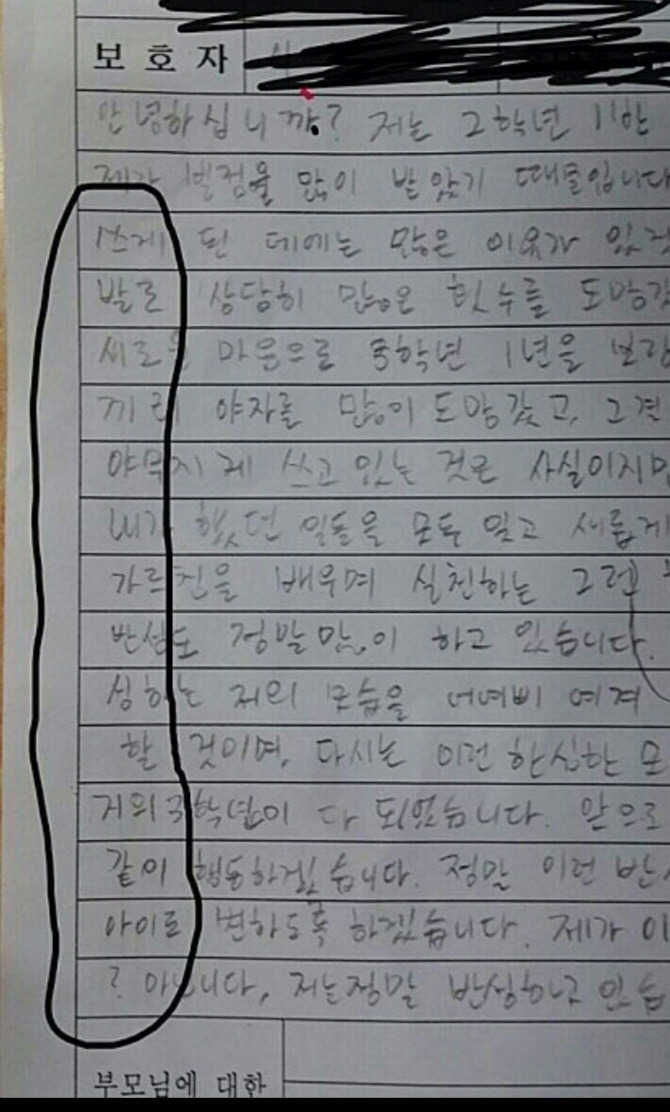 보호자
안녕하십니까? 저는 2학년 11반
제가 벌점을 많이 받았기 때문입니다
쓰게 된 데에는 많은 이유가 있겠
발로 상당히 많은 횟수를 도망갔
새로운 마음으로 3학년 1년을 보람
끼리 야자를 많이 도망갔고, 그 결
야무지게 쓰고 있는 것은 사실이지만
내가 했던 일들을 모두 잊고 새롭게
가르친을 배우며 실천하는 그런
반성도 정말 많이 하고 있습니다.
성하는 저의 모습을 어여삐 여겨
할 것이며, 다시는 이런 한심한 모
거의 3학년이 다 되었습니다. 앞으로
같이 행동하겠습니다. 정말 이런 반
아이로 변하도록 하겠습니다. 제가 이
? 아닙니다, 저는 정말 반성하고 있습
부모님에 대한